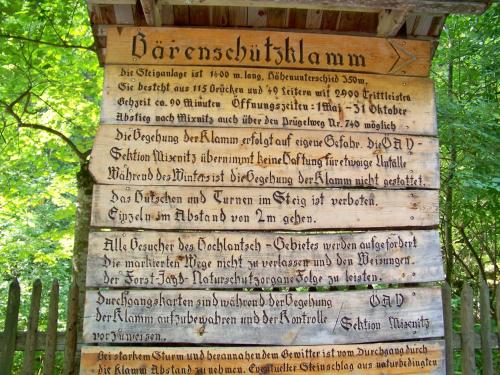 Bärenschützklamm
Die Steiganlage ist 1400 m. lang, Höhenunterschied 350m.
Sie besteht aus 115 Brücken und 49 Leitern mit 2900 Trittleisten
Gehzeit ca. 90 Minuten Öffnungszeiten: 1 Mai - 31 Oktober
Abstieg nach Mixnitz auch über den Prügelweg Nr. 740 möglich
Die Begehung der Klamm erfolgt auf eigene Gefahr. Die ÖAV -
Sektion Mixnitz übernimmt keine Haftung für etwaige Unfälle
Während des Winters ist die Begehung der Klamm nicht gestattet.
Das Hutschen und Turnen im Steig ist verboten.
Einzeln im Abstand von 2m gehen.
Alle Besucher des Hochlantsch - Gebietes werden aufgefordert
Die markierten Wege nicht zu verlassen und den Weisungen
der Forst-Jagd-Naturschutzorgane Folge zu leisten.
Durchgangskarten sind während der Begehung ÖAV
der Klamm aufzubewahren und der Kontrolle / Sektion Mixnitz
vorzuweisen.
Bei starkem Sturm und herannahendem Gewitter ist vom Durchgang durch
die Klamm Abstand zu nehmen. Eventueller Steinschlag aus naturbedingten